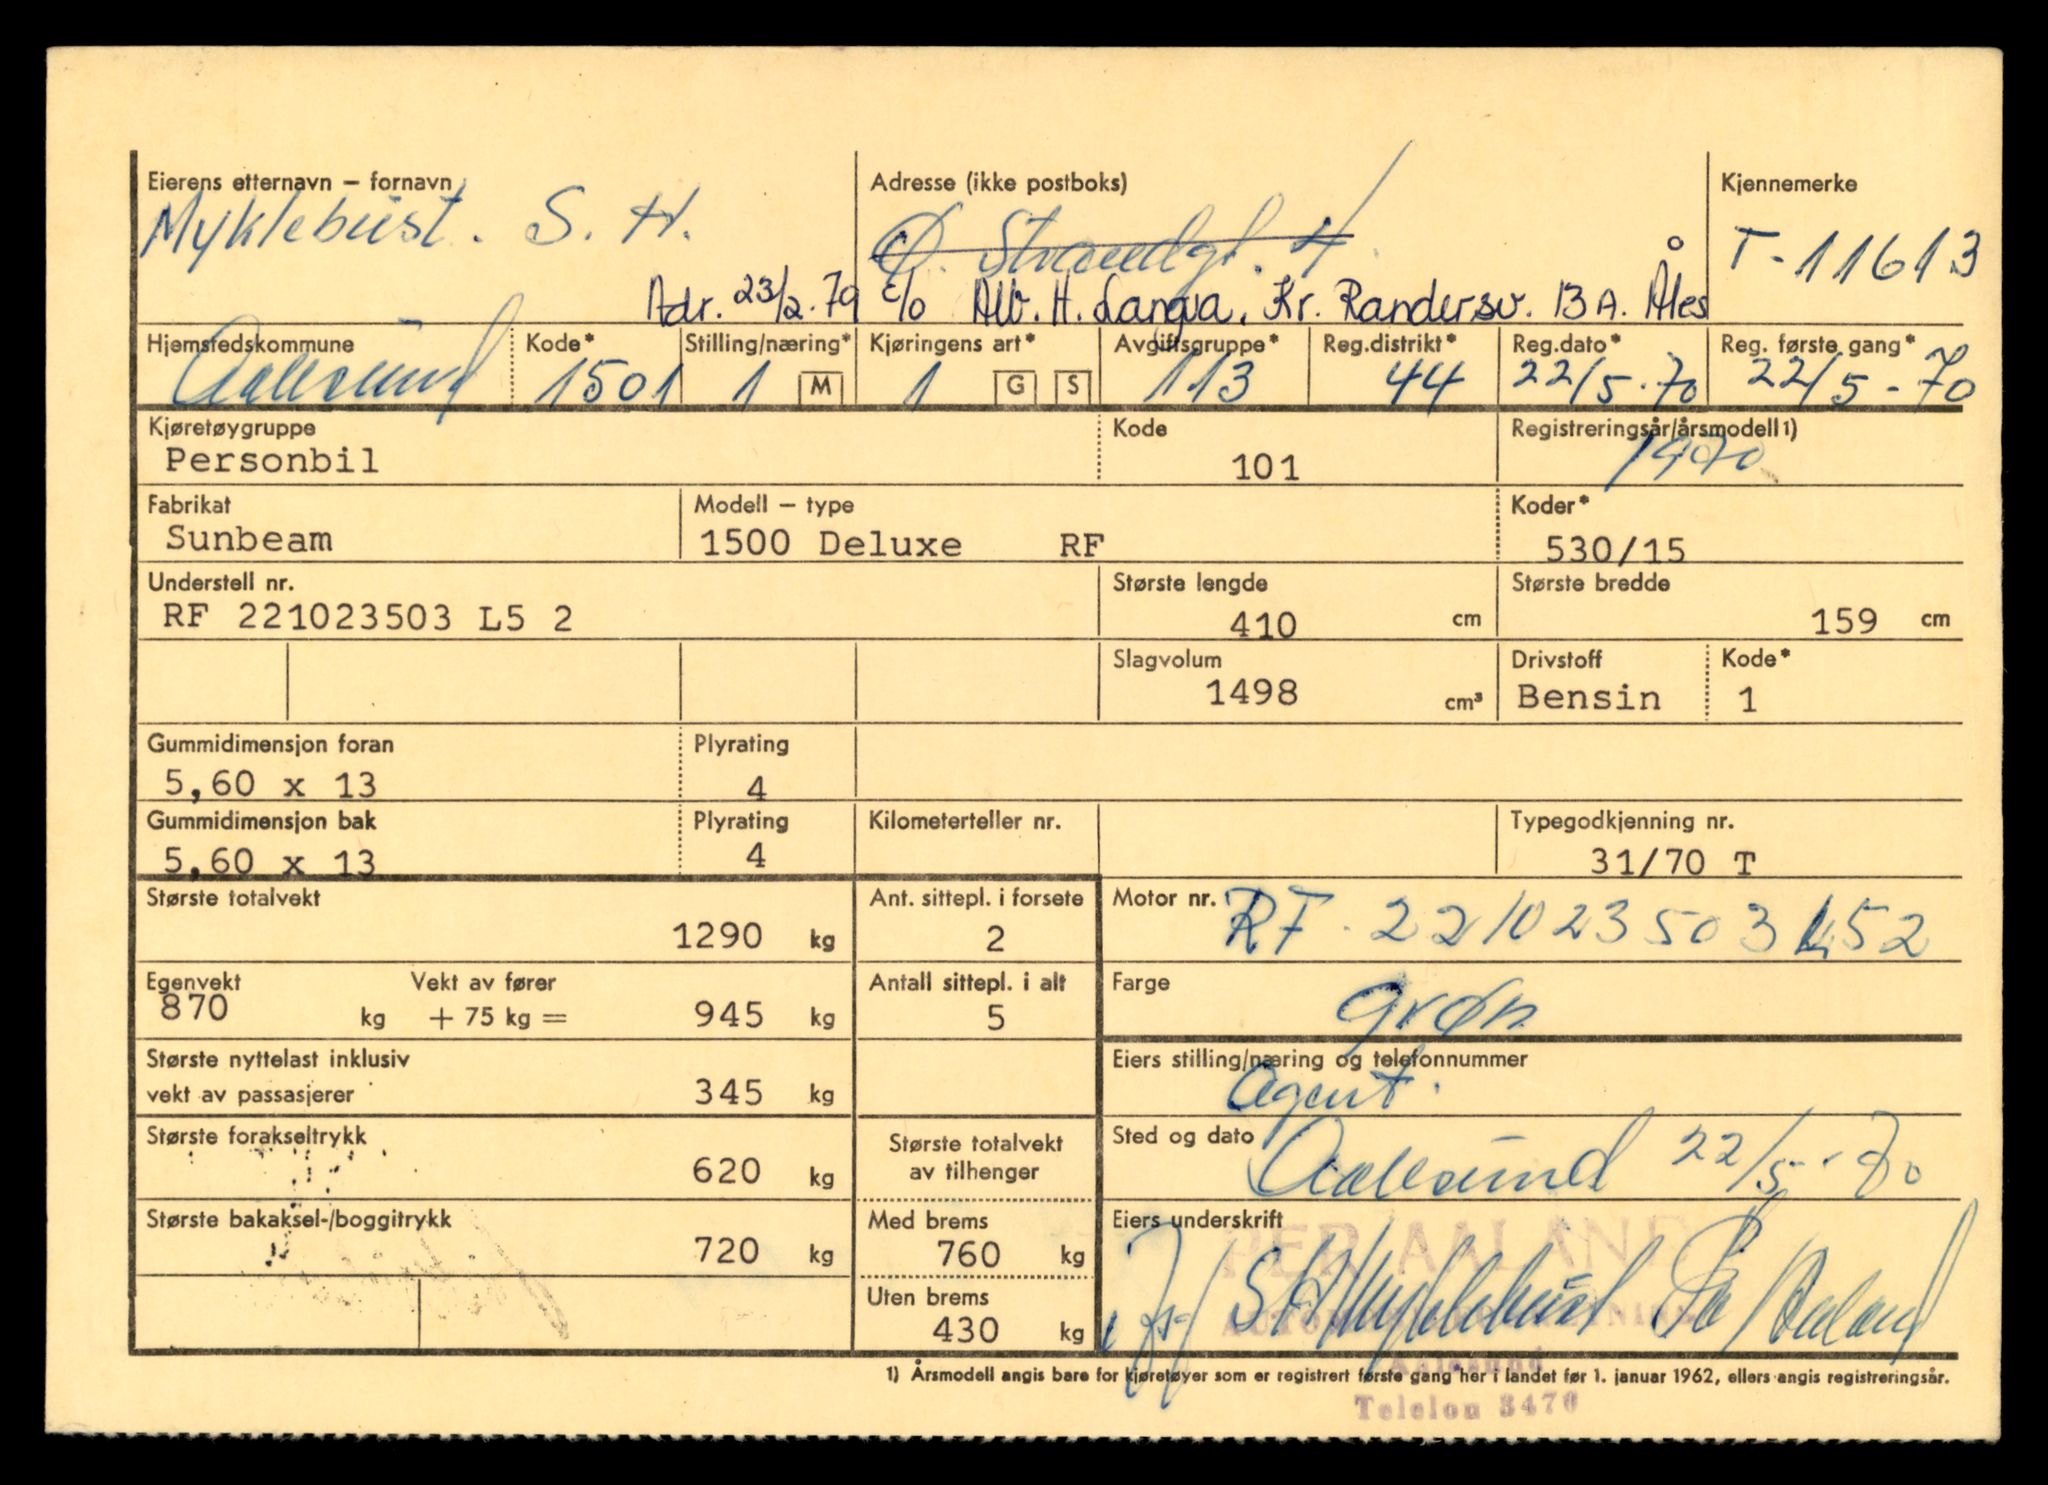 Eierens etternavn – fornavn
Myklebust. S. H.
Adresse (ikke postboks)
Ø. Strandgt. 4
Kjennemerke
T-11613
Adr. 23/2.79 c/o Alb. H. Langva. Kr. Randersv. 13 A. Ålesund
Hjemstedskommune
Aalesund
Kode*
1501
Stilling/næring*
1 M
Kjøringens art*
1 G S
Avgiftsgruppe*
113
Reg.distrikt*
44
Reg.dato*
22/5.70
Reg. første gang*
22/5-70
Kjøretøygruppe
Personbil
Kode
101
Registreringsår/årsmodell1)
1970
Fabrikat
Sunbeam
Modell – type
1500 Deluxe RF
Koder*
530/15
Understell nr.
RF 221023503 L5 2
Største lengde
410 cm
Største bredde
159 cm
Slagvolum
1498 cm³
Drivstoff
Bensin
Kode*
1
Gummidimensjon foran
5,60 x 13
Plyrating
4
Gummidimensjon bak
5,60 x 13
Plyrating
4
Kilometerteller nr.
Typegodkjenning nr.
31/70 T
Største totalvekt
1290 kg
Ant. sittepl. i forsete
2
Motor nr.
RF. 221023503 L52
Egenvekt
870 kg
Vekt av fører
+ 75 kg =
945 kg
Antall sittepl. i alt
5
Farge
grøn
Største nyttelast inklusiv
vekt av passasjerer
345 kg
Eiers stilling/næring og telefonnummer
Agent.
Største forakseltrykk
620 kg
Største totalvekt
av tilhenger
Sted og dato
Aalesund 22/5-70
Største bakaksel-/boggitrykk
720 kg
Med brems
760 kg
Uten brems
430 kg
Eiers underskrift
PER AALAND
S H Myklebust Per Aaland
Aalesund
Telefon 3470
1) Årsmodell angis bare for kjøretøyer som er registrert første gang her i landet før 1. januar 1962, ellers angis registreringsår.